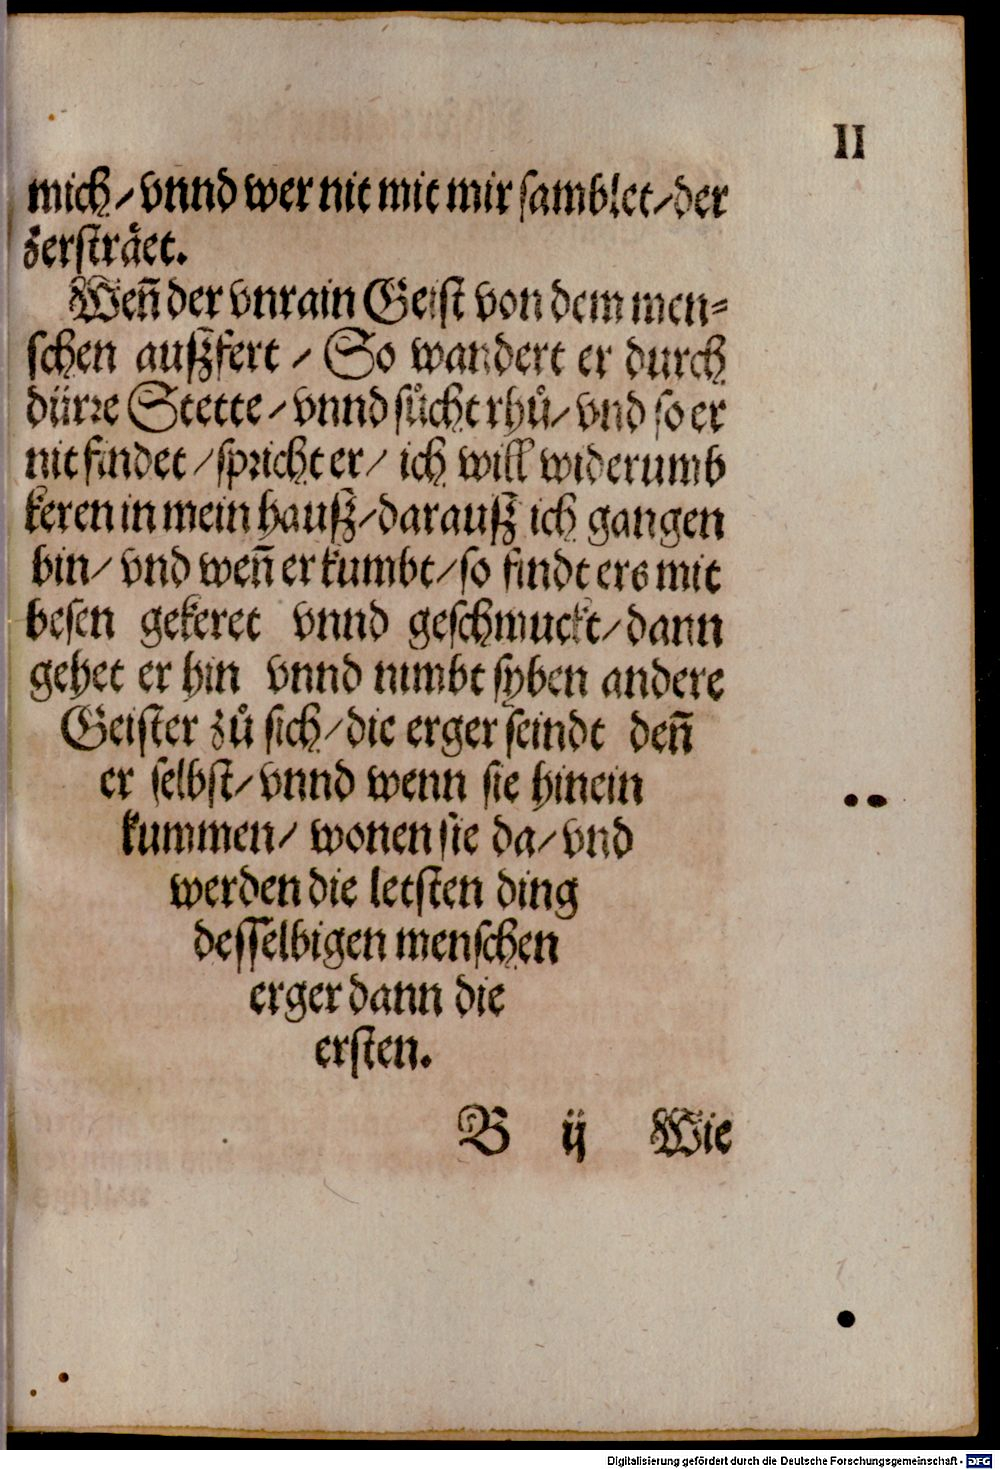 II
mich / vnnd wer nit mit mir samblet / der
zersträet.
Weñ der vnrain Geist von dem men-
schen außfert / So wandert er durch
dürre Stette / vnnd sůcht rhů / vnd so er
nit findet / spricht er / ich will widerumb
keren in mein hauß / darauß ich gangen
bin / vnd weñ er kumbt / so findt ers mit
besen gekeret vnnd geschmuckt / dann
gehet er hin vnnd nimbt syben andere
Geister zů sich / die erger seindt deñ
er selbst / vnnd wenn sie hinein
kummen / wonen sie da / vnd
werden die letsten ding
desselbigen menschen
erger dann die
ersten.
B ij Wie
Digitalisierung gefördert durch die Deutsche Forschungsgemeinschaft - DFG